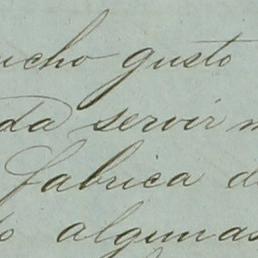 ucho gusto
da servir m
fabrica d
o algunas